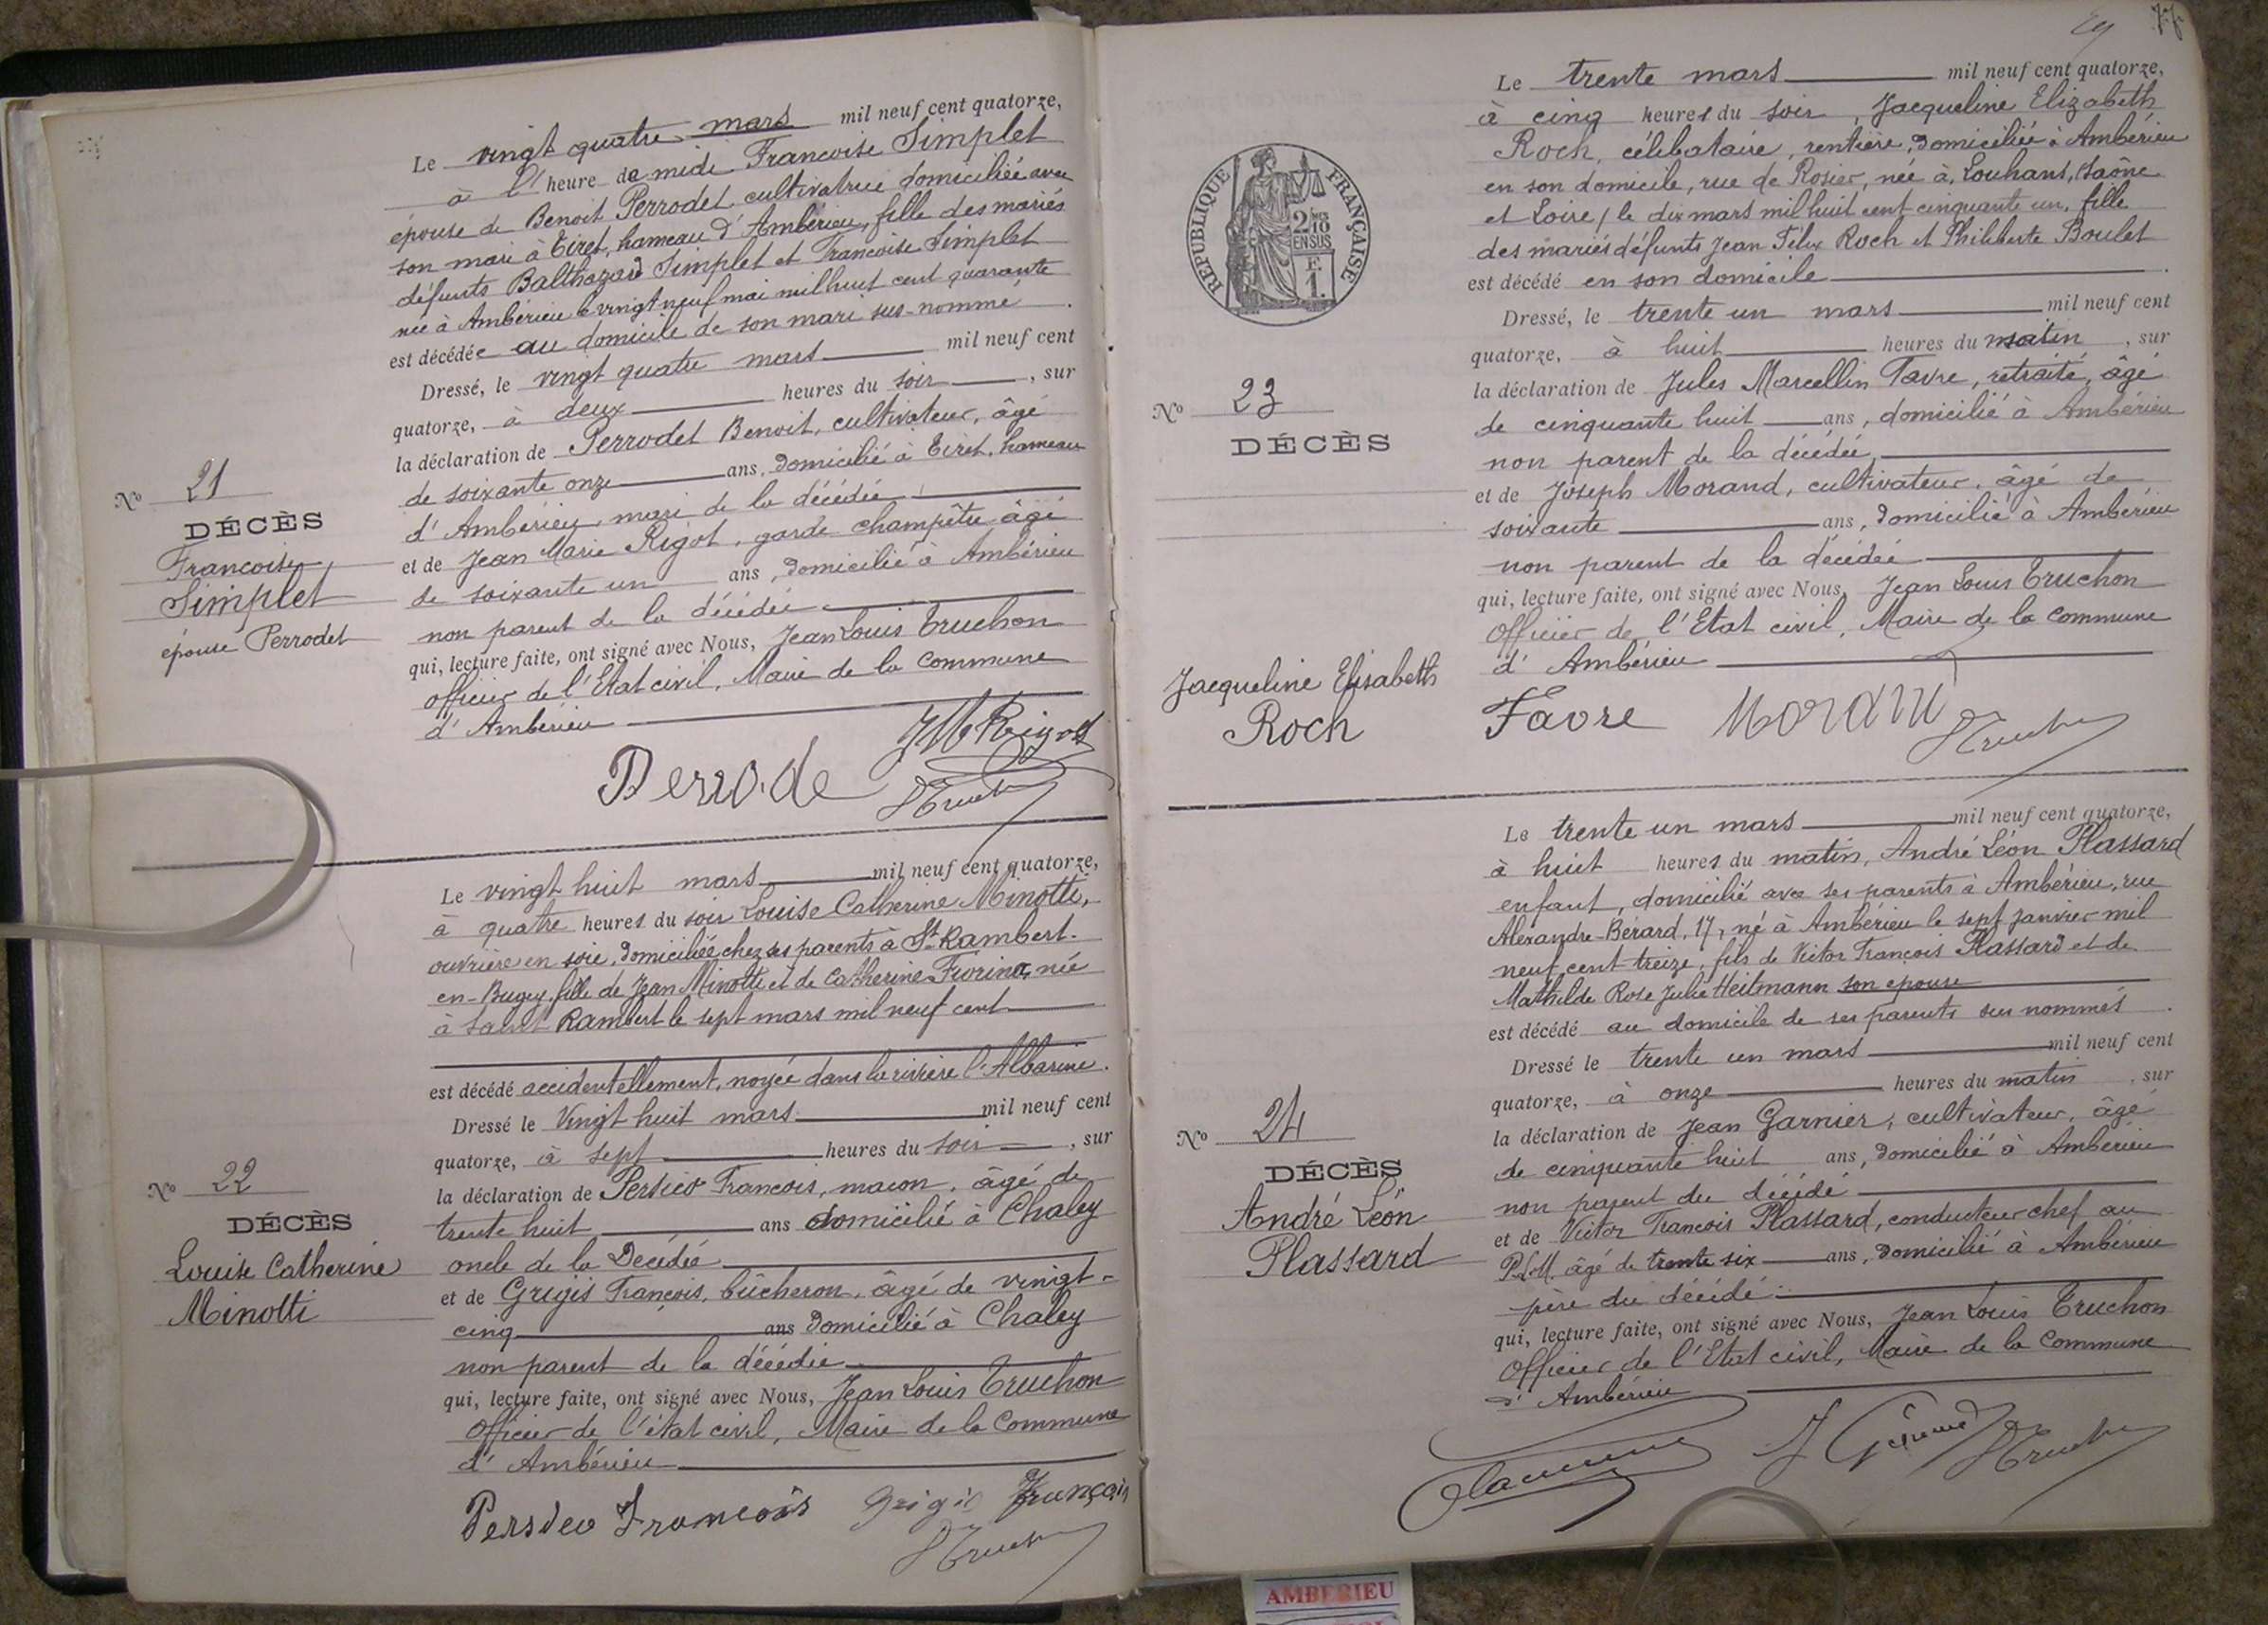 Le vingt quatre mars mil neuf cent quatorze,
à l'heure de midi Francoise Simplet
épouse de Benoit Perrodet cultivatrice domiciliée avec
son mari à Tiret, hameau d'Ambérieu, fille des mariés
défunts Balthazard Simplet et Francoise Simplet
née à Ambérieu le vingt neuf mai mil huit cent quarante
est décédée au domicile de son mari sus-nommé.
Dressé, le vingt quatre mars mil neuf cent
quatorze, à deux heures du soir, sur
la déclaration de Perrodet Benoit, cultivateur, âgé
de soixante onze ans, domicilié à Tiret, hameau
d'Ambérieu, mari de la décédée
et de Jean Marie Rigot, garde champêtre âgé
de soixante un ans, domicilié à Ambérieu
non parent de la décédée
qui, lecture faite, ont signé avec Nous, Jean Louis Truchon
officier de l'Etat civil, Maire de la commune
d'Ambérieu
No 21
DÉCÈS
Francoise
Simplet
épouse Perrodet
Perrode JM Rigot
Le vingt huit mars mil neuf cent quatorze,
à quatre heures du soir Louise Catherine Minotti,
ouvrière en soie, domiciliée chez ses parents à St Rambert-
en-Bugey, fille de Jean Minotti et de Catherine Fiorina, née
à Saint Rambert le sept mars mil neuf cent
est décédé accidentellement, noyée dans la rivière l'Albarine.
Dressé le Vingt huit mars mil neuf cent
quatorze, à sept heures du soir, sur
la déclaration de Persico Francois, macon, âgé de
trente huit ans domicilié à Chaley
oncle de la Décédée
et de Grigis Francois, bûcheron, âgé de vinigt-
cinq ans domicilié à Chaley
non parent de la décédée
qui, lecture faite, ont signé avec Nous, Jean Louis Truchon
Officier de l'état civil, Maire de la Commune
d'Ambérieu
No 22
DÉCÈS
Louise Catherine
Minotti
Persico Francois Grigis François
77
RÉPUBLIQUE FRANÇAISE
2/10
EN SUS
F.
1.
Le trente mars mil neuf cent quatorze,
à cinq heures du soir, Jacqueline Elizabeth
Roch, célibataire, rentière, domiciliée à Ambérieu
en son domicile, rue de Rosier, née à Louhans, (Saône
et Loire) le dix mars mil huit cent cinquante un, fille
des mariés défunts Jean Félix Roch et Philiberte Boulet
est décédé en son domicile.
Dressé, le trente un mars mil neuf cent
quatorze, à huit heures du matin, sur
la déclaration de Jules Marcellin Favre, retraité, âgé
de cinquante huit ans, domicilié à Ambérieu
non parent de la décédée,
et de Joseph Morand, cultivateur, âgé de
soixante ans, domicilié à Ambérieu
non parent de la décédée
qui, lecture faite, ont signé avec Nous, Jean Louis Truchon
Officier de l'Etat civil, Maire de la Commune
d'Ambérieu
No 23
DÉCÈS
Jacqueline Elisabeth
Roch
Favre Morand
Le trente un mars mil neuf cent quatorze,
à huit heures du matin, André Léon Plassard
enfant, domicilié avec ses parents à Ambérieu, rue
Alexandre-Bérard, 17, né à Ambérieu le sept janvier mil
neuf cent treize, fils de Victor François Plassard et de
Mathilde Rose Julie Heitmann son epouse
est décédé au domicile de ses parents sus nommés.
Dressé le trente un mars mil neuf cent
quatorze, à onze heures du matin, sur
la déclaration de Jean Garnier, cultivateur, âgé
de cinquante huit ans, domicilié à Ambérieu
non parent du décédé
et de Victor Francois Plassard, conducteur chef au
P.L.M. âgé de trente six ans, domicilié à Ambérieu
père du décédé
qui, lecture faite, ont signé avec Nous, Jean Louis Truchon
Officier de l'Etat civil, Maire de la Commune
d'Ambérieu
No 24
DÉCÈS
André Léon
Plassard
AMBERIEU